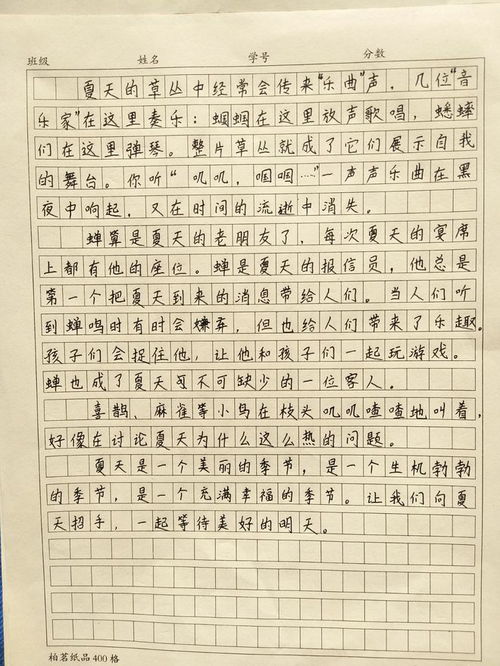 班级 姓名 学号 分数
夏天的草丛中经常会传来“乐曲”声，几位“音
乐家”在这里奏乐：蝈蝈在这里放声歌唱，蟋蟀
们在这里弹琴。整片草丛就成了它们展示自我
的舞台。你听“叽叽，啯啯……”一声声乐曲在黑
夜中响起，又在时间的流逝中消失。
蝉算是夏天的老朋友了，每次夏天的宴席
上都有他的座位。蝉是夏天的报信员，他总是
第一个把夏天到来的消息带给人们。当人们听
到蝉鸣时有时会嫌弃，但也给人们带来了乐趣。
孩子们会捉住他，让他和孩子们一起玩游戏。
蝉也成了夏天不可缺少的一位客人。
喜鹊、麻雀等小鸟在枝头叽叽喳喳地叫着，
好像在讨论夏天为什么这么热的问题。
夏天是一个美丽的季节，是一个生机勃勃
的季节，是一个充满幸福的季节。让我们向夏
天招手，一起等待美好的明天。
柏茗纸品400格